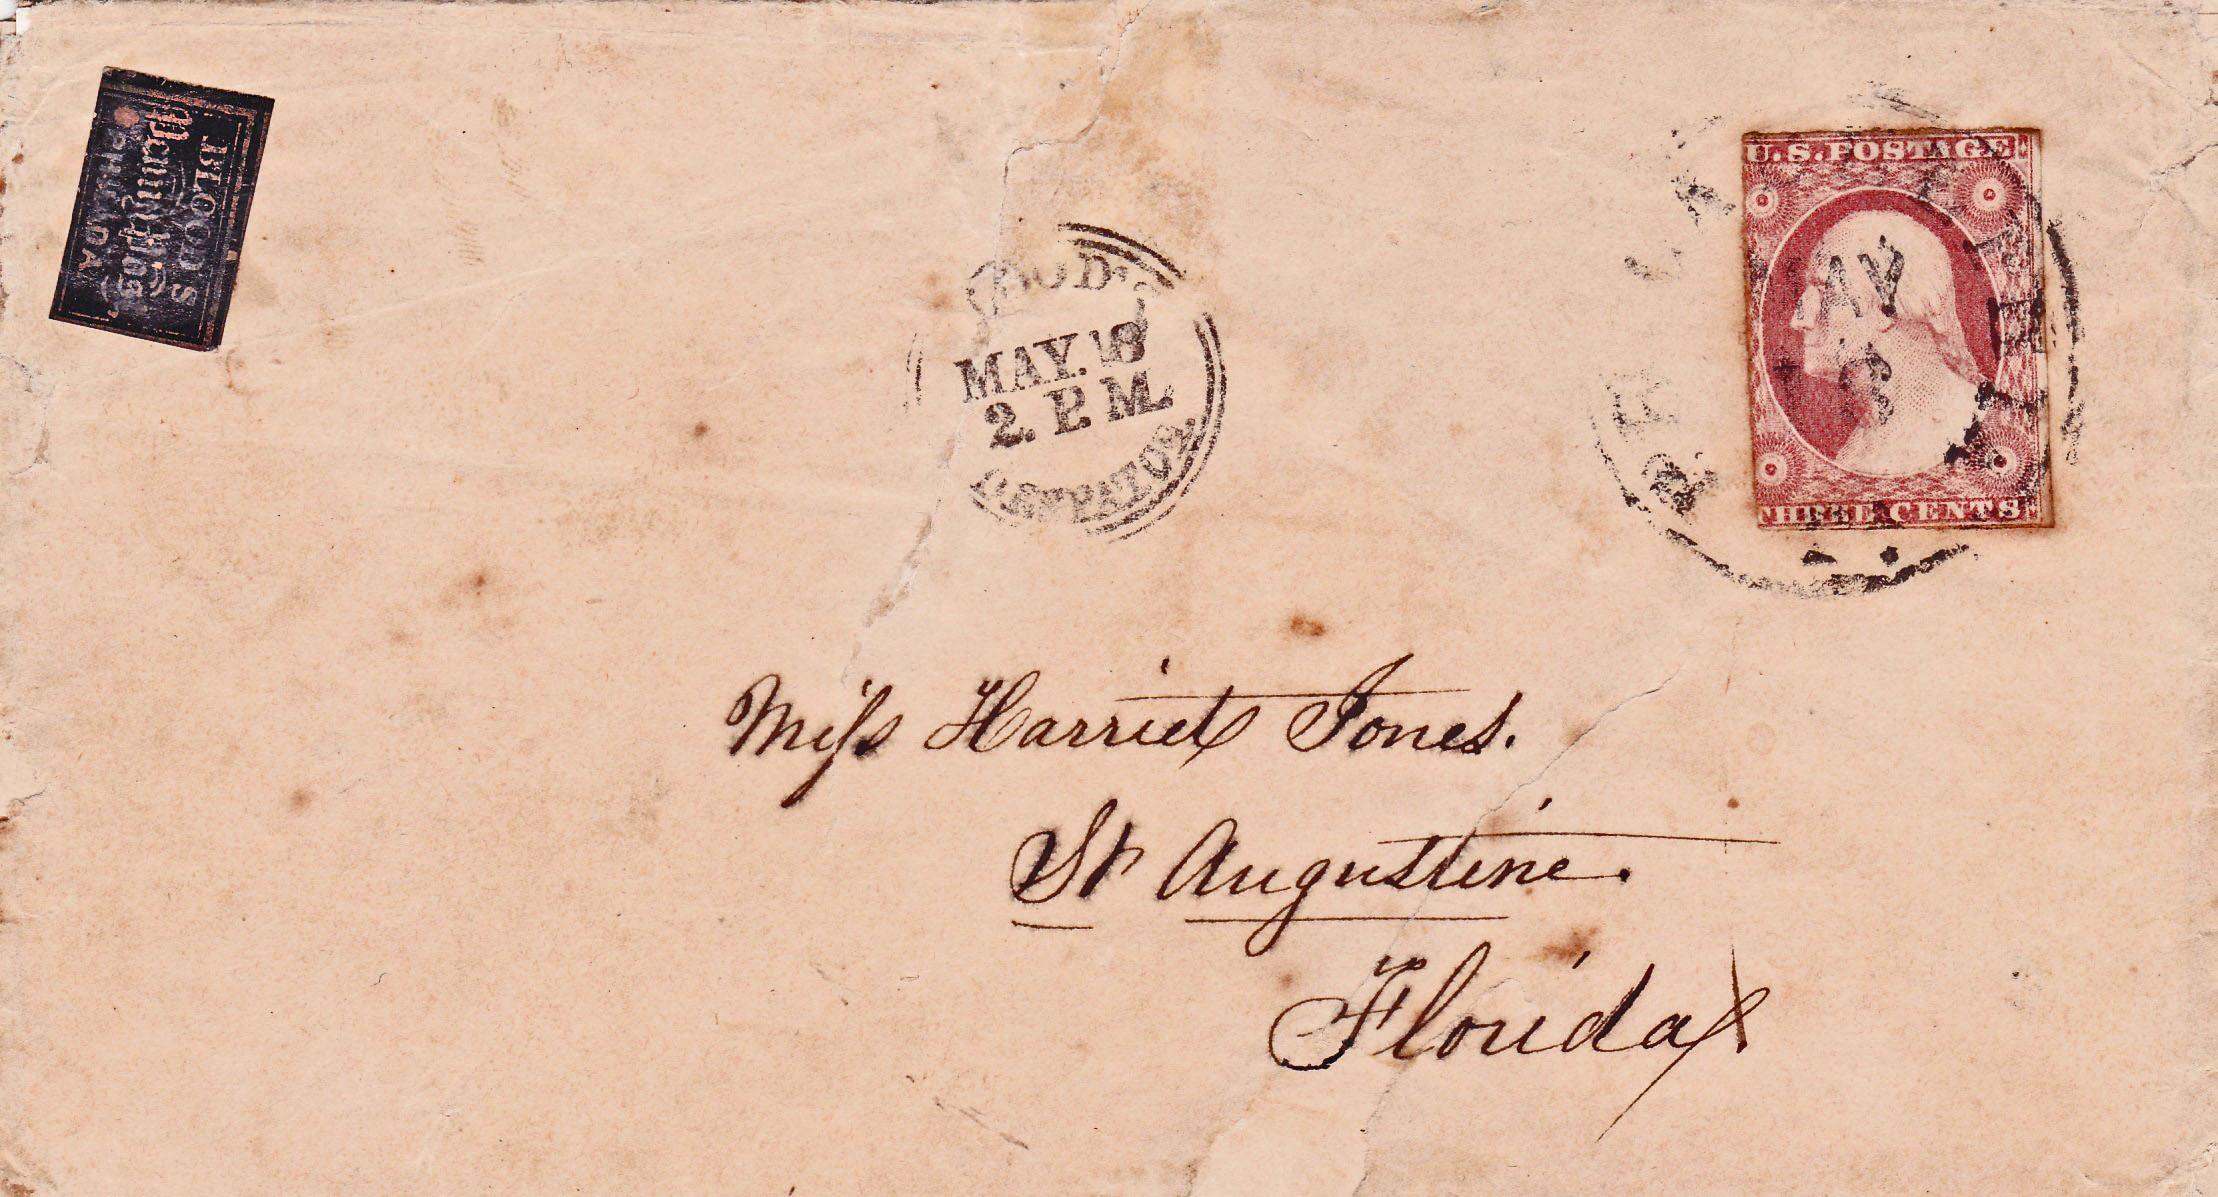 BLOOD'S
Penny Post
PHILADA
MAY. 18
2. P.M.
DESPATCH
U.S. POSTAGE
MAY
18
THREE CENTS
Miss Harriet Jones.
St Augustine.
Florida